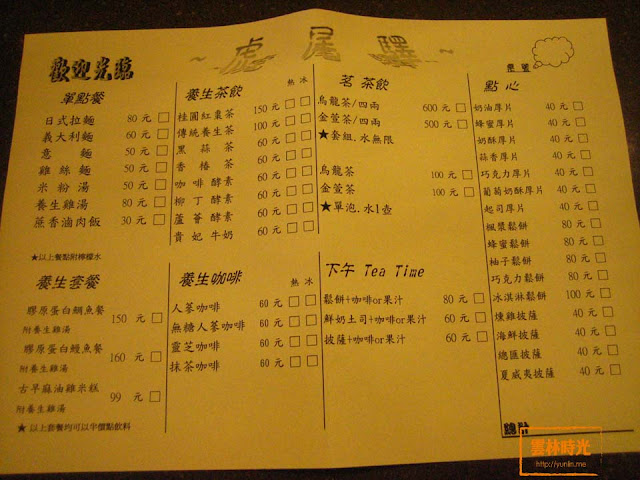 歡迎光臨
~虎尾驛~
桌號
單點餐
日式拉麵 80 元 □
義大利麵 60 元 □
意 麵 50 元 □
雞絲麵 50 元 □
米粉湯 50 元 □
養生雞湯 80 元 □
蔗香滷肉飯 30 元 □
★以上餐點附檸檬水
養生茶飲 熱 冰
桂圓紅棗茶 150 元 □ □
傳統養生茶 100 元 □ □
黑 蒜 茶 60 元 □ □
香 椿 茶 60 元 □ □
咖啡酵素 60 元 □ □
柳丁酵素 60 元 □ □
蘆薈酵素 60 元 □ □
貴妃牛奶 60 元 □ □
茗 茶飲
烏龍茶/四兩 600 元 □
金萱茶/四兩 500 元 □
★套組.水無限
烏龍茶 100 元 □
金萱茶 100 元 □
★單泡.水1壺
點 心
奶油厚片 40 元 □
蜂蜜厚片 40 元 □
奶酥厚片 40 元 □
蒜香厚片 40 元 □
巧克力厚片 40 元 □
葡萄奶酥厚片 40 元 □
起司厚片 40 元 □
楓漿鬆餅 80 元 □
蜂蜜鬆餅 80 元 □
柚子鬆餅 80 元 □
巧克力鬆餅 80 元 □
冰淇淋鬆餅 100 元 □
燻雞披薩 40 元 □
海鮮披薩 40 元 □
總匯披薩 40 元 □
夏威夷披薩 40 元 □
總計
養生套餐
膠原蛋白鯛魚餐 150 元 □
附養生雞湯
膠原蛋白鰻魚餐 160 元 □
附養生雞湯
古早麻油雞米糕 99 元 □
附養生雞湯
★以上套餐均可以半價點飲料
養生咖啡 熱 冰
人蔘咖啡 60 元 □ □
無糖人蔘咖啡 60 元 □ □
靈芝咖啡 60 元 □ □
抹茶咖啡 60 元 □ □
下午 Tea Time
鬆餅+咖啡or果汁 80 元 □
鮮奶土司+咖啡or果汁 60 元 □
披薩+咖啡or果汁 60 元 □
雲林時光
http://yunlin.me